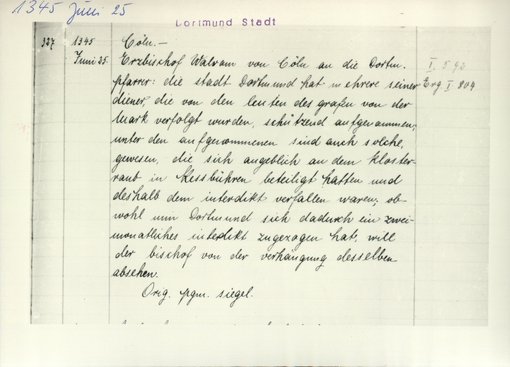 1345 Juni 25
Dortmund Stadt
327 1345 Cöln.–
Juni 25. Erzbischof Walram von Cöln an die Dortm. I, 593
pfarrer: die stadt Dortmund hat mehrere seiner Erg I 804
diener, die von den leuten des grafen von der
Mark verfolgt wurden, schützend aufgenommen;
unter den aufgenommenen sind auch solche,
gewesen, die sich angeblich an dem kloster-
raub in Kessbühren beteiligt hatten und
deshalb dem interdikt verfallen waren; ob-
wohl nun Dortmund sich dadurch ein zwei-
monatliches interdikt zugezogen hat, will
der bischof von der verhängung desselben
absehen.
Orig. pgm. siegel.